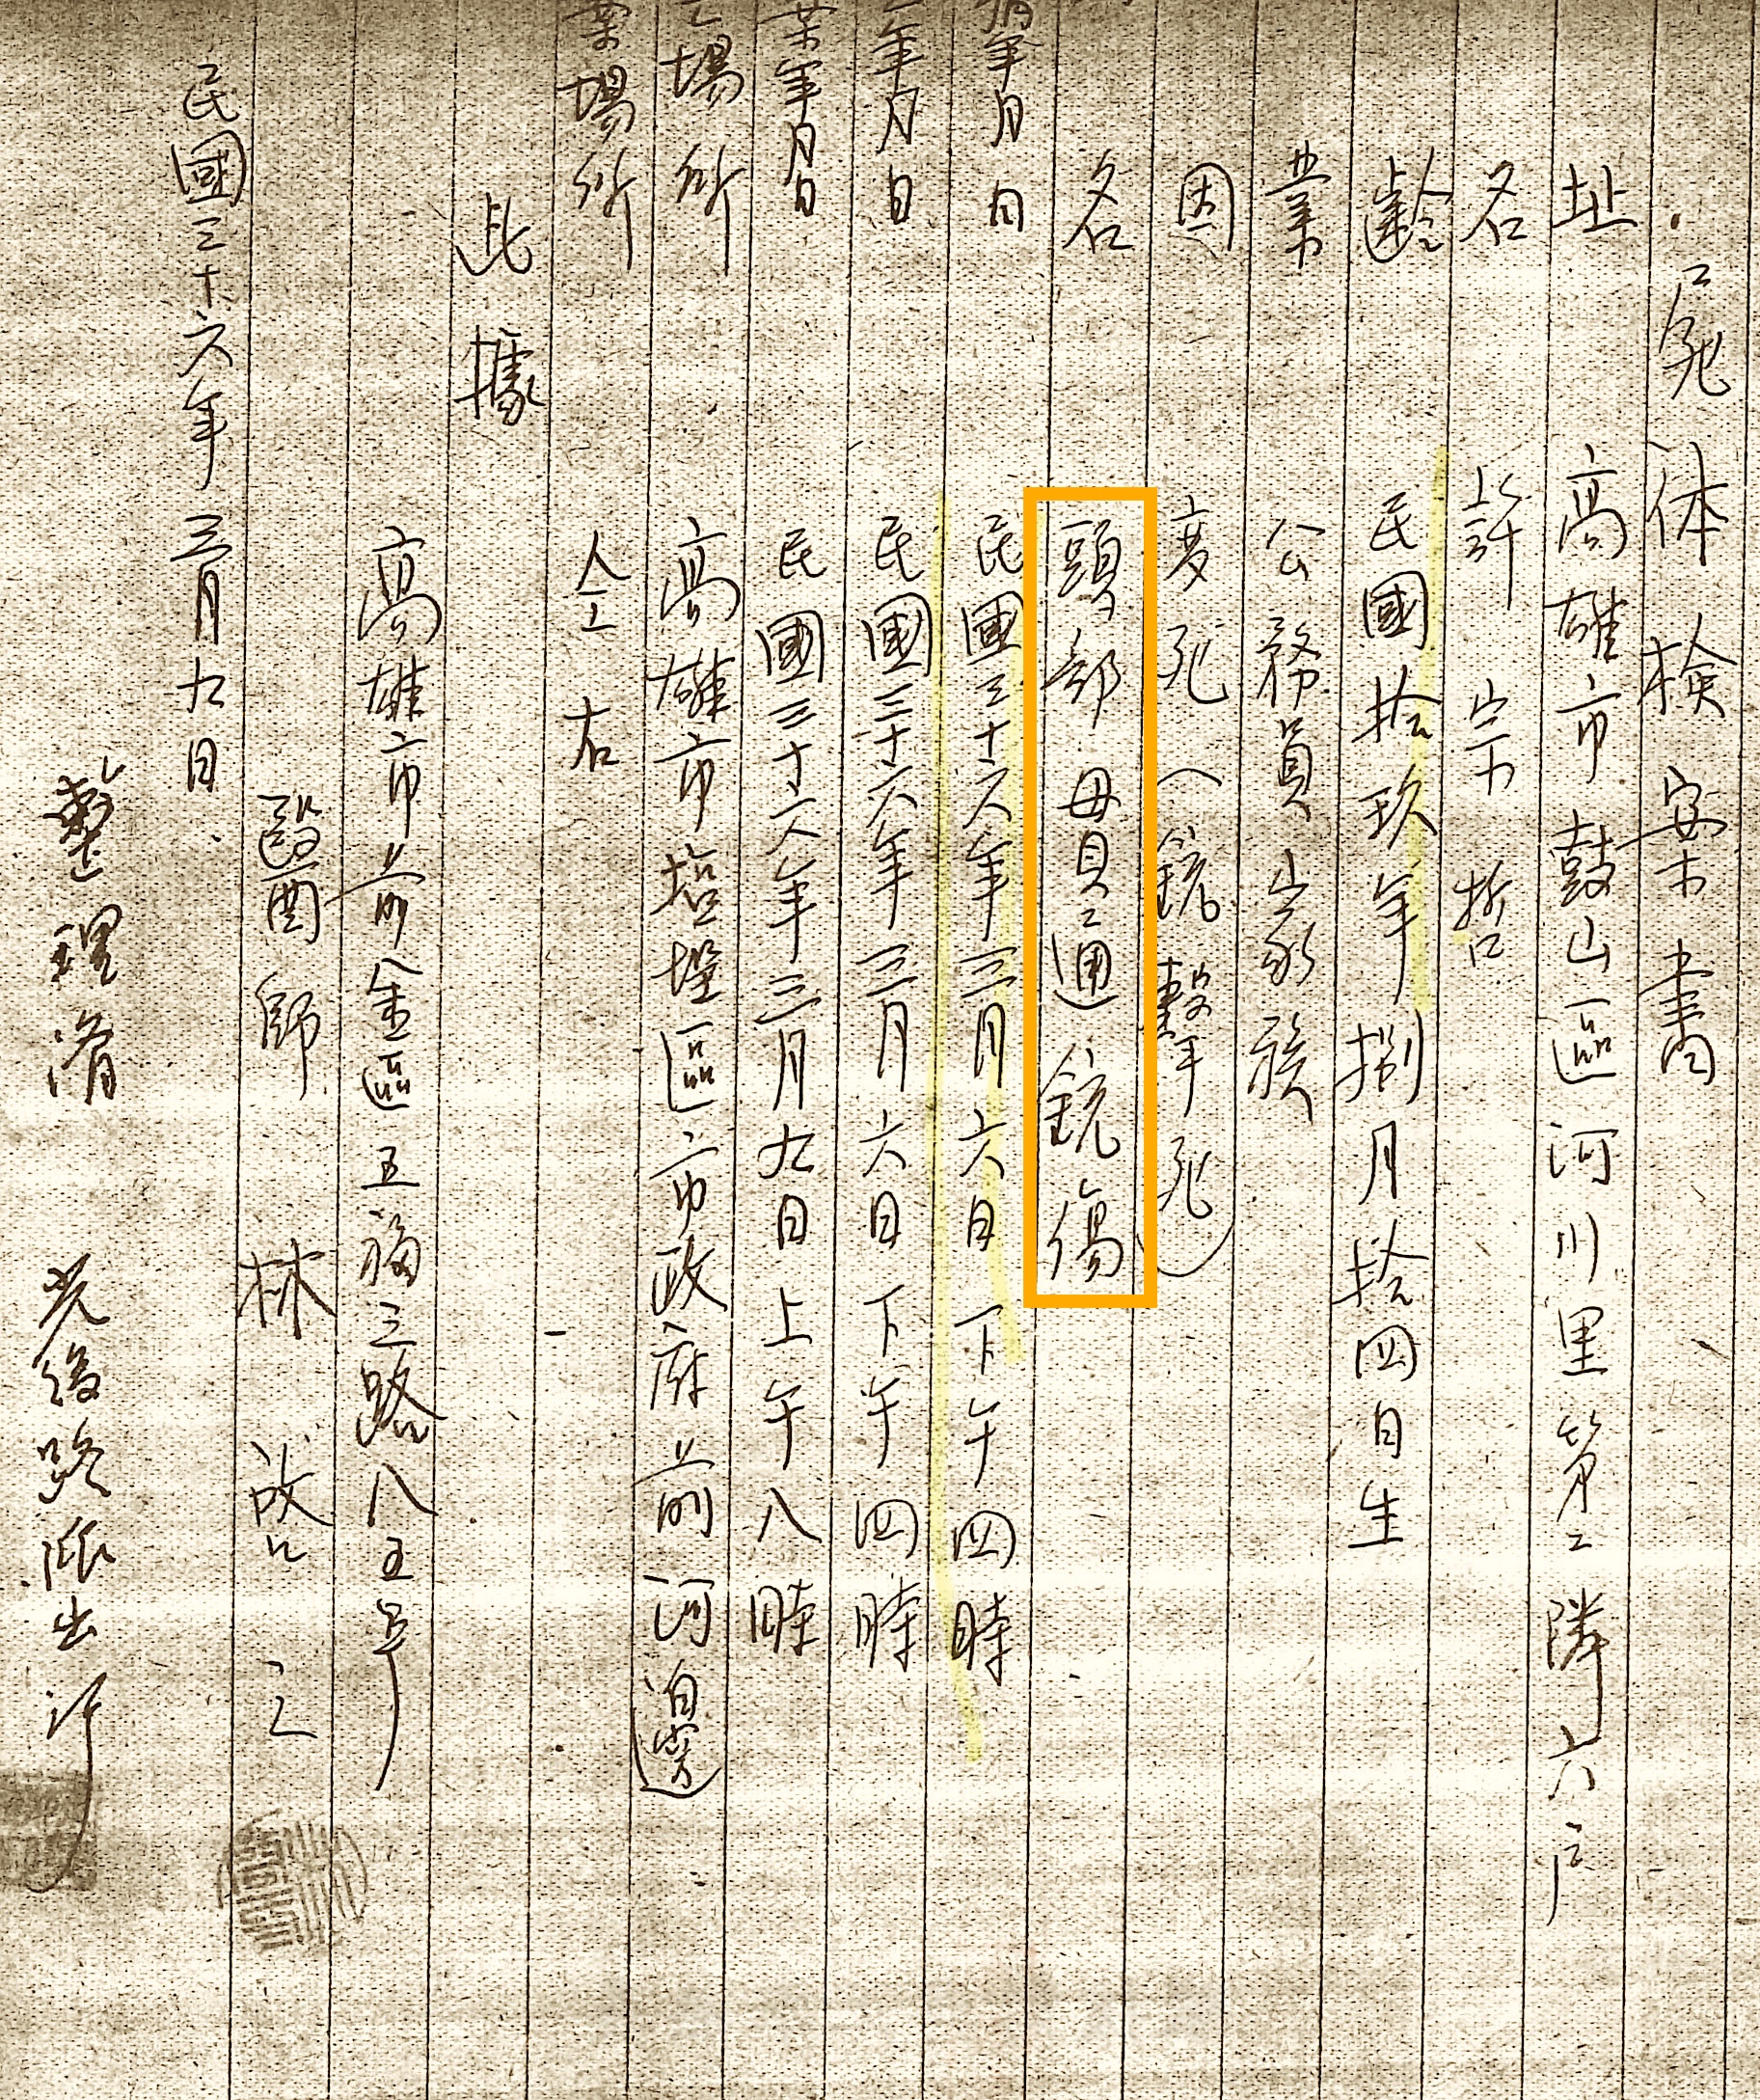 屍体検案書
址 高雄市鼓山區河川里第二隣六户
名 許宗哲
齡 民國拾玖年捌月拾四日生
業 公務員家族
因 変死(銃擊死)
名 頭部毌貫通銃傷
年月日 民國三十六年三月六日下午四時
年月日 民國三十六年三月六日下午四時
案年月日 民國三十六年三月九日上午八時
場所 高雄市塩埕區市政府前河邊
案場所 仝右
此據
高雄市前金區五福三路八五号
醫師 林啟之
民國三十六年三月九日
整理者 光復路派出所